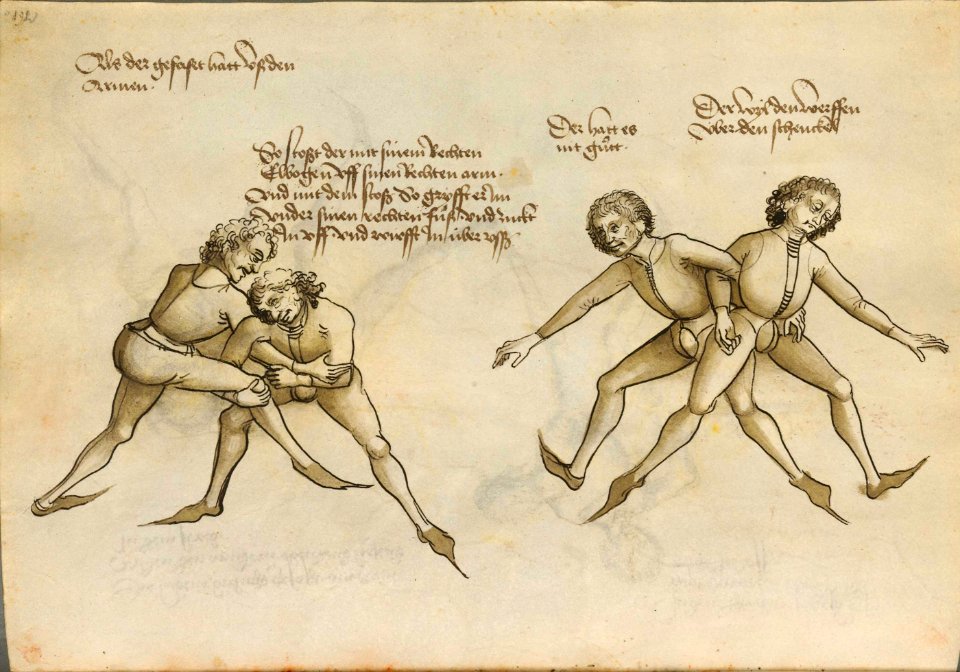 Als der gefasset hatt vß den
Armen.
So stosst der mit sinem Rechten
Elbogen vff sinen Rechten arm.
Vnd mit dem stoß So gryfft er Im
vonder sinen rechten fuß vnd zuckt
In vff vnd wirfft In über vß
Der hatt es
nit gůtt.
Der wyl den werffen
Vber den schenckel